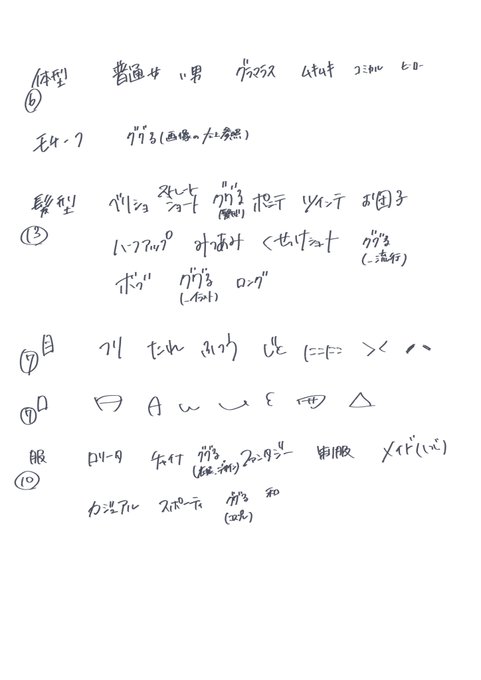 体型 普通女 〃男 グラマラス ムキムキ コミカル ヒーロー
⑥
モチーフ ググる(画像の 参照)
髪型 ベリショ ストレートショート ググる ポニテ ツインテ お団子
⑬ ハーフアップ みつあみ くせっけショート ググる
(_流行)
ボブ ググる ロング
(_イラスト)
目 つり たれ ふつう じと ニコニコ ><
⑦
口 ω ε △
⑦
服 ロリータ チャイナ ググる ファンタジー 制服 メイド(しつじ)
⑩ カジュアル スポーティ ググる 和